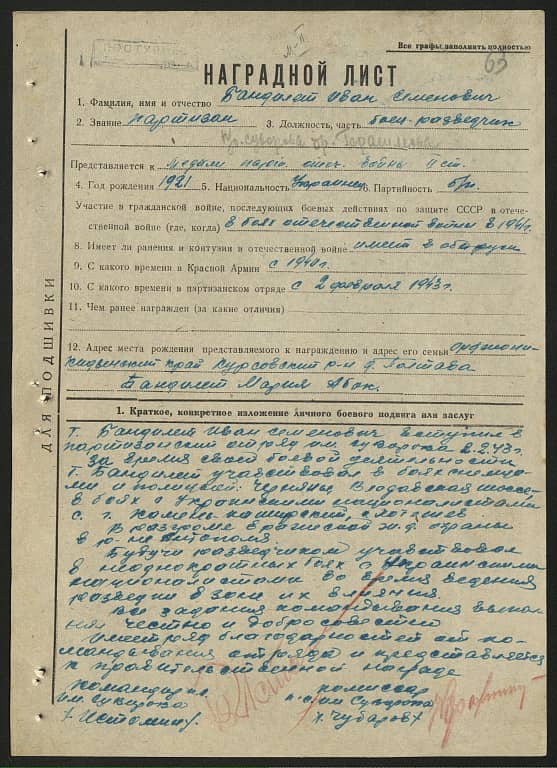 ПОСТУПИЛ
М-II
Все графы заполнять полностью
63
НАГРАДНОЙ ЛИСТ
1. Фамилия, имя и отчество Бандилет Иван Семенович
2. Звание партизан 3. Должность, часть боец-разведчик
Представляется к медали парти. отеч. войны II ст.
4. Год рождения 1921 5. Национальность Украинец 6. Партийность б/п.
Участие в гражданской войне, последующих боевых действиях по защите СССР и отече-
ственной войне (где, когда) в боях отечественной войны в 1941г.
8. Имеет ли ранения и контузия в отечественной войне имеет в обе руки
9. С какого времени в Красной Армии с 1940г.
10. С какого времени в партизанском отряде с 2 февраля 1943г.
11. Чем ранее награжден (за какие отличия)
12. Адрес места рождения представляемого к награждению и адрес его семьи орджони-
кидзенский край Курсовский р-н д. Полтава
Бандилет Мария
ДЛЯ ПОДШИВКИ
1. Краткое, конкретное изложение личного боевого подвига или заслуг
т. Бандилет Иван Семенович вступил в
партизанский отряд им. Суворова 2.2.43г.
За время своей боевой деятельности
т. Бандилет участвовал в боях с немца-
ми и полицией: Черняны Влодавская шоссе
в боях с Украинскими националистами
с. г. Камень каширский,
В разгроме вражеской ж.д. охраны
в р-не
Будучи разведчиком участвовал
в неоднократных боях с Украинскими
националистами во время ведения
разведки в зоне их влияния.
Все задания командования выпол-
нял честно и добросовестно
Имеет ряд благодарностей от ко-
мандывания отряда и представляется
к правительственной награде
Командир п.о. комиссар
им. Суворова п.о. им Суворова
/Истомин/ /Чубаров/